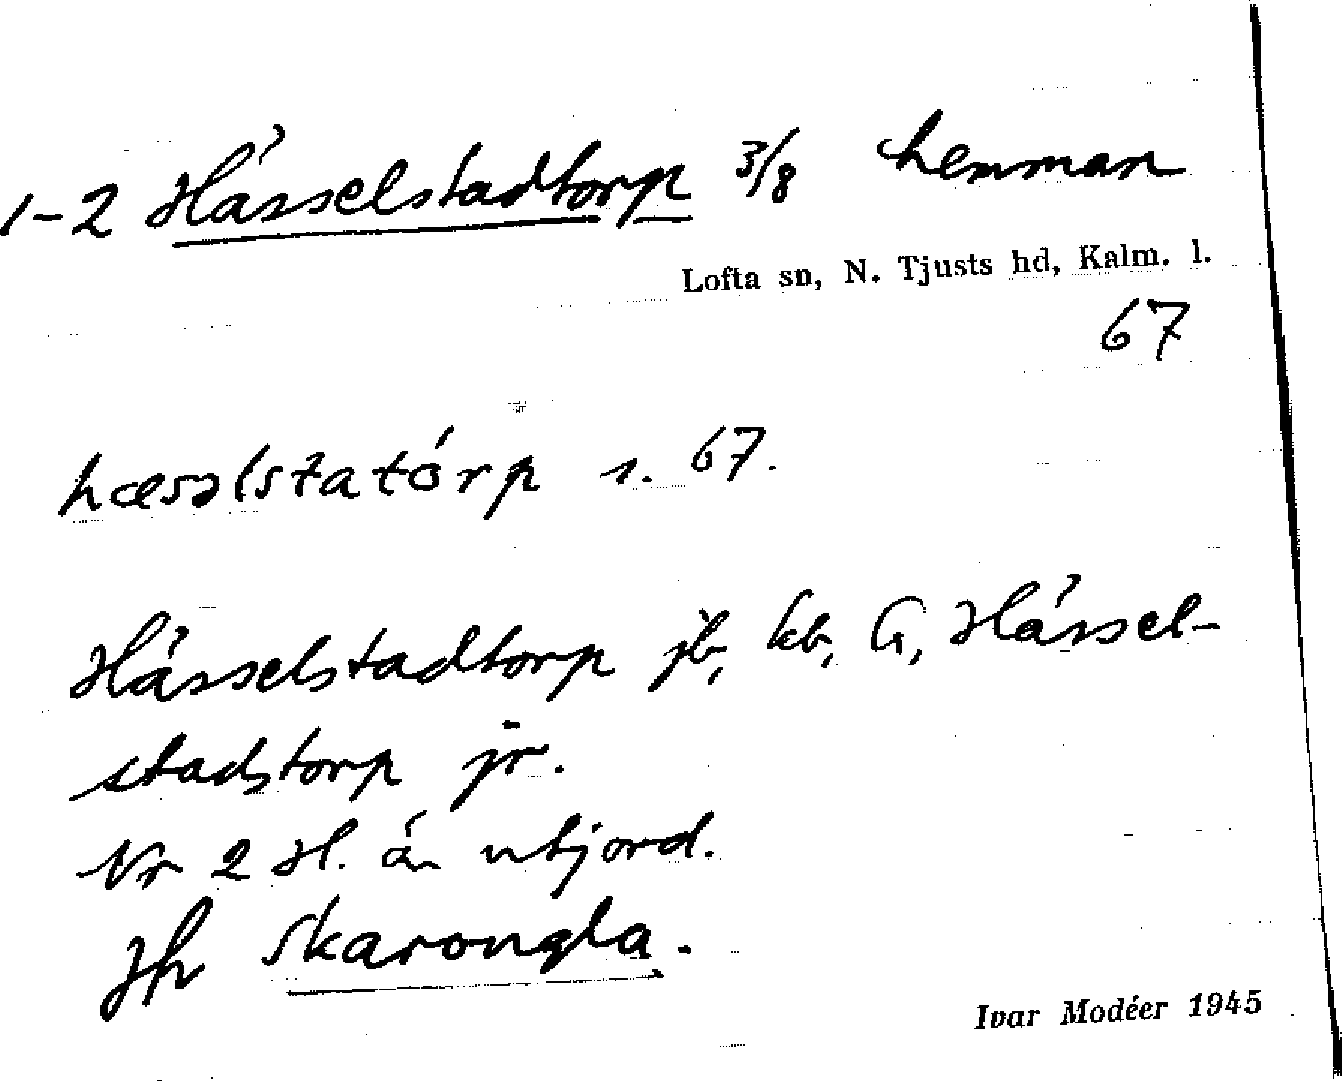 1-2 Hässelstadtorp 3/8 hemman
Lofta sn, N. Tjusts hd, Kalm. l.
67
hæsəlstatórp s. 67.
Hässelstadtorp jb, kb, G, Hässel-
stadstorp jr.
Nr 2 H. är utjord.
Jfr Skarongla.
Ivar Modéer 1945